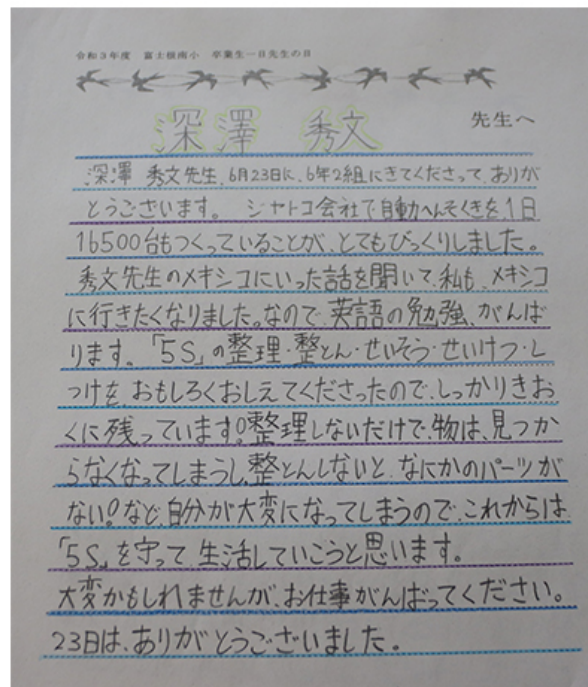 令和3年度 富士根南小 卒業生一日先生の日
深澤 秀文 先生へ
深澤 秀文先生、6月23日に、6年2組にきてくださって、ありが
とうございます。 ジヤトコ会社で自動へんそくきを1日
16500台もつくっていることが、とてもびっくりしました。
秀文先生のメキシコにいった話を聞いて、私も、メキシコ
に行きたくなりました。なので、英語の勉強、がんば
ります。「5S」の整理・整とん・せいそう・せいけつ・し
つけを、おもしろくおしえてくださったので、しっかりきお
くに残っています。整理しないだけで、物は、見つか
らなくなってしまうし、整とんしないと、なにかのパーツが
ない!など、自分が大変になってしまうので、これからは
「5S」を守って、生活していこうと思います。
大変かもしれませんが、お仕事がんばってください。
23日は、ありがとうございました。